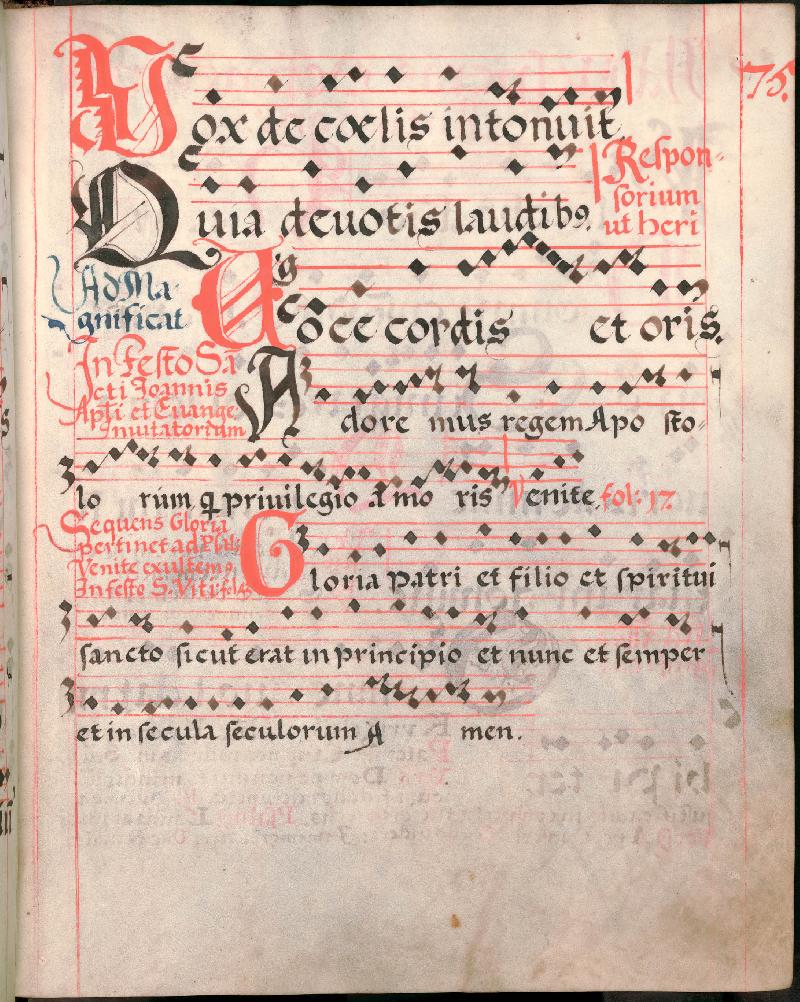 75.
Vox de cœlis intonuit
Quia deuotis laudib9.
Respon-
sorium
ut heri
Ad Ma-
gnificat
Uoce cordis et oris.
In Festo Sā
cti Joannis
Apti et Euange.
Inuitatorium
Adoremus regem Aposto-
lorum q priuilegio amoris Venite. fol: 17
Sequens Gloria
pertinet ad Psal:
Venite exultem9
In festo S. Viti: fol
Gloria patri et filio et spiritui
sancto sicut erat in principio et nunc et semper
et in secula seculorum Amen.